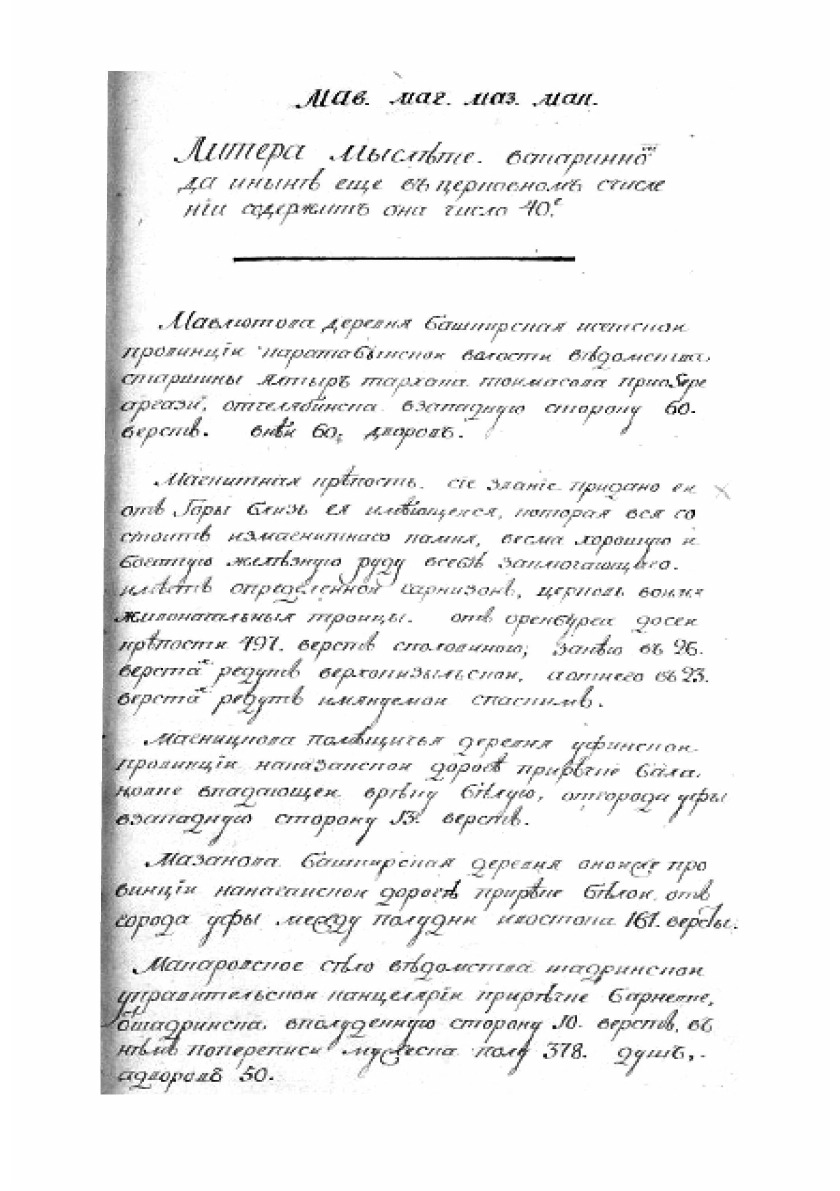 Мав. маг. маз. мак.
Литера Мыслѣте. встаринно
да инынѣ еще въ церковномъ счисле
нїи содержитъ она число 40.е
Мавлютова деревня башкирская исецкой
провинцїи каратабынской волости вѣдомства,
старшины Ялтыръ тархана тоимасова приозере
аргази, отчелябинска взападную сторону 60.
верстъ. внѣй 60, дворовъ.
Магнитная крѣпость. сїе званїе придано ей
отъ Горы близь ея имѣющейся, которая вся со
стоитъ измагнитнаго камня, весма хорошую и
богатую желѣзную руду всебѣ заключающаго.
имѣетъ определенной гарнизонъ, церковь воимя
живоначальныя троицы. отъ оренбурга досей
крѣпости 497. верстъ споловиною, занѣю въ 26.
верстахъ редутъ верхокизыльской, аотнего въ 23.
верстахъ редутъ имянуемой спаскимъ.
Магницкова помѣщичья деревня уфинской
провинцїи наказанской дорогѣ прирѣчке бала,
цолке впадающей врѣку бѣлую, отгорода уфы
взападную сторону 13. верстъ.
Мазанова башкирская деревня оноиже про
винцїи нанагаиской дорогѣ прирѣке бѣлой отъ
города уфы между полудни ивостока 161. версты.
Макаровское сѣло вѣдомства шадринской
управительской канцелярїи прирѣчке барневке,
отшадринска, вполуденную сторону 10. верстъ, въ
нѣмъ попереписи мужеска полу 378. душъ,
адворовъ 50.